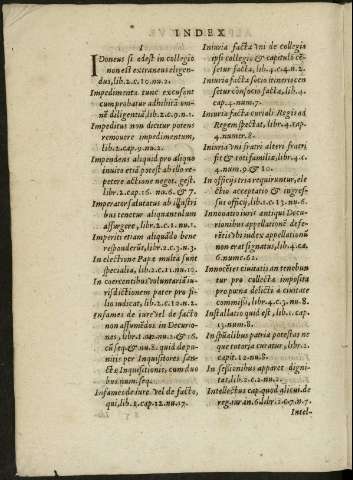 INDEX
IDoneus si adest in collegio
non est extraneus eligen-
dus, lib. 2. c. 10. nu. 2.
Impedimenta tunc excusant
cum probatur adhibitã omi-
nẽ diligentiã, lib. 2. c. 9. nu. 1.
Impeditus non dicitur potens
remouere impedimentum,
lib. 2. cap. 9. nu. 2.
Impendens aliquid pro aliquo
inuito etiã potest ab illo re-
petere actione negot. gest.
lib. 2. cap. 16. nu. 6. & 7.
Imperator salutatus ab illustri
bus tenetur aliquantulum
assurgere, lib. 2. c. 1. nu. 1.
Imperiti etiam aliquãdo bene
responderũt, libr. 2. c. 3. n. 3.
In electione Papæ multa sunt
specialia, lib. 2. c. 11. nu. 19.
In coercentibus voluntariã iu-
risdictionem pater pro fi-
lio iudicat, lib. 2. c. 10. n. 2.
Infames de iure vel de facto
non assumẽdos in Decurio-
nes, libr. 1. 12. nu. 1. & 16.
cũ seq. & nu. 2. quid depu-
nitis per Inquisitores san-
ctæ Inquisitionis, cum duo
bus num. seq.
Infames de iure vel de facto,
qui, lib. 2. cap. 12. nu. 17.
Iniuria facta vni de collegio
ipsi collegio & capitulo cẽ-
setur facta, lib. 4. c. 4. n. 2.
Iniuria facta socio itineris cen
setur consocio facta, lib. 4.
cap. 4. num. 7.
Iniuria facta curiali Regis ad
Regem spectat, libr. 4. cap.
4. numer. 8.
Iniuria vni fratri alteri fratri
fit & toti familiæ, libr. 4. c.
4. num. 9. & 10.
In officijs tria requiruntur, ele
ctio acceptatio & ingres-
sus officij, lib. 1. c. 13. nu. 6.
Innouatio iuris antiqui Decu-
rionibus appellationẽ defe-
rẽtis vbi index appellationũ
non erat signatus, lib. 4. ca.
6. nume. 62.
Innocẽter ciuitatis an tenebun
tur pro collecta imposita
pro parua delicti à ciuitate
commissi, libr. 4. c. 3. nu. 8.
Installatio quid est, lib. 1. cap.
13. num. 8.
Inspũalibus patria potestas ne
que tutoria curatur, lib. 2.
capit. 12. nu. 8.
In sessionibus apparet digni-
tas, lib. 2. c. 2. nu. 2.
Intellectus cap. quod alicui. de
reg. iur. in 6. libr. 2. c. 7. n. 7.
Intel-